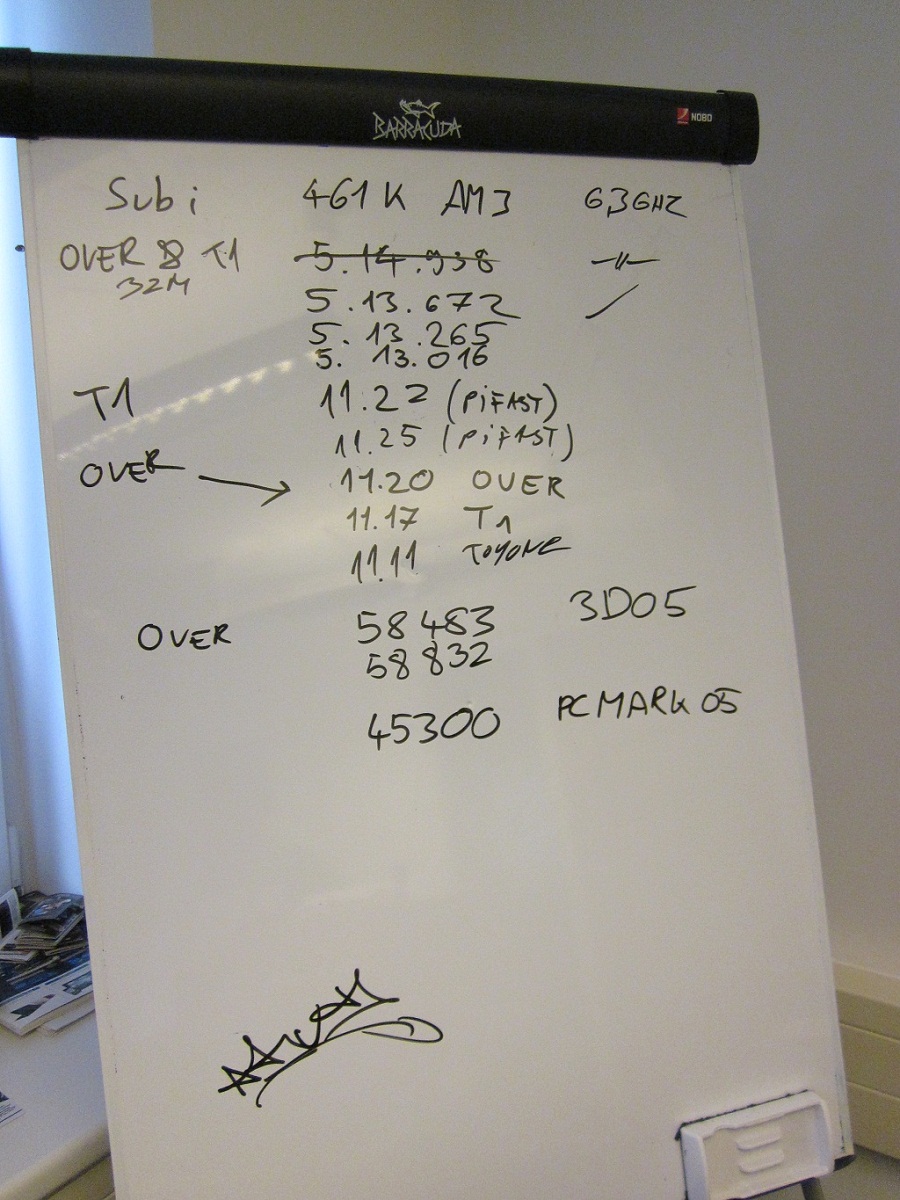 BARRACUDA NOBO
Subi 461K AM3 6,3GHZ
OVER & T1 5.14.938 -//-
32M
5.13.672
5.13.265
5. 13.016
T1 11.22 (PiFAST)
11.25 (PiFAST)
OVER → 11.20 OVER
11.17 T1
11.11 TOYONE
OVER 58 483 3D05
58 832
45300 PCMARK 05